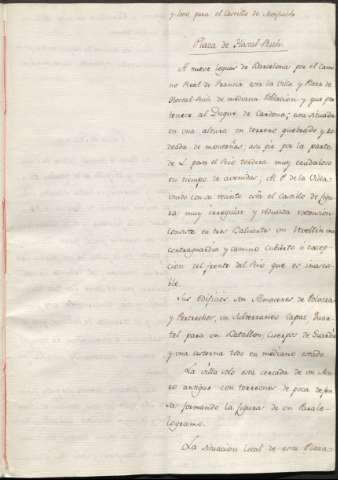 y leva para el Castillo de Monjuich
Plaza de Hostal-Rich.
A nueve leguas de Barcelona por el Cami
no Real de Francia está la Villa y Plaza de
Hostal-Rich de mediana Poblacion y que per
tenece al Duque de Cardona; esta situada
en una altura en terreno quebrado y ro
deada de montañas, assi que por la parte
de L. pasa el Rio Tordera muy caudaloso
en tiempo de avenidas. Al P. de la Villa
unido con su recinto está el castillo de figu
ra muy irregular y reducida extencion
consiste en tres Baluartes un Revellin una
contraguardia y camino cubierto á excep
cion del frente del Rio que es inaccesi
ble.
Sus edificios son Almacenes de Polvora
y Pertrechos, un Subterraneo capaz Quar
tel para un Batallon; Cuerpos de Guardia
y una cisterna todo en mediano estado.
La villa solo está cercada de un Mu
ro antiguo con torreones de poca defen
sa formando la figura de un Paralе
logramo.
La situacion local de esta Plaza